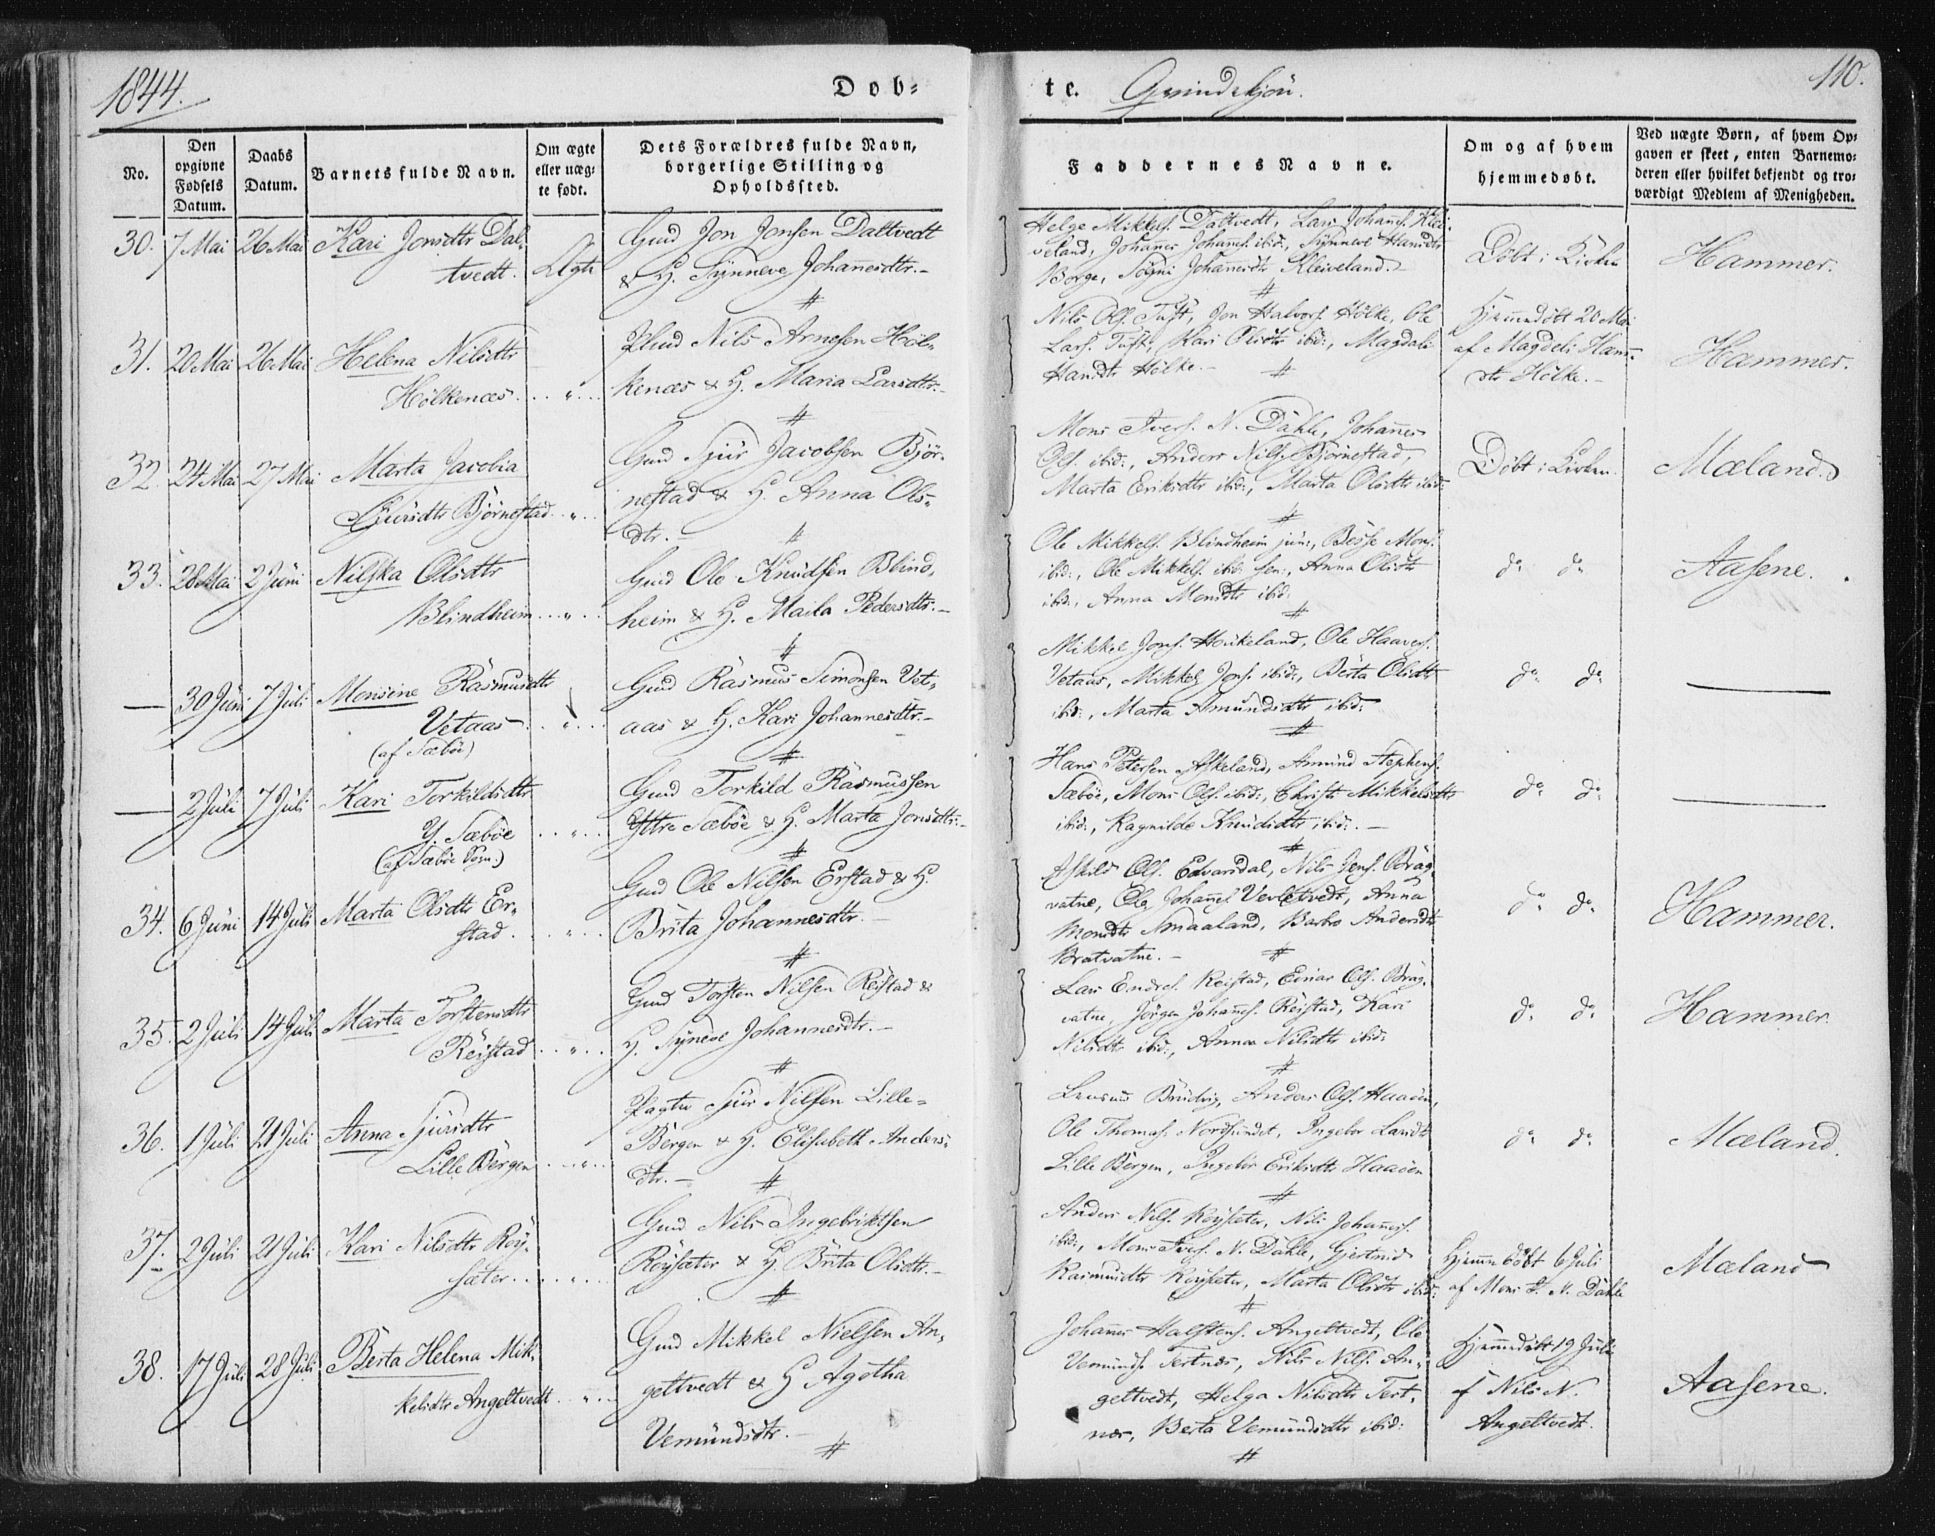 1844.
Dob=
te. Qvindekjön.
110.
No.
Den opgivne Fødsels Datum.
Daabs Datum.
Barnets fulde Navn.
Om ægte eller uægte født.
Dets Forældres fulde Navn, borgerlige Stilling og Opholdssted.
Faddernes Navne.
Om og af hvem hjemmedøbt.
Ved uægte Børn, af hvem Opgaven er skeet, enten Barnemoderen eller hvilket bekjendt og troværdigt Medlem af Menigheden.
30. 7 Mai 26 Mai Kari Jonsdtr Dal=
tvedt. Ægte
Gmd Jon Jonsen Daltvedt
& H. Synneve Johannesdtr.
Helge Mikkels. Daltvedt, Lars Johans. Klei=
veland, Johannes Johans. ibid:, Synneve Hansdtr
Borge, Sygni Johannesdtr Kleiveland.
Döbt i Kirken
Hammer.
31. 20 Mai 26 Mai Helena Nilsdtr
Hölkenæs
Nils Arnesen Höl=
kenæs & H. Maria Larsdtr.
Nils Ols. Tuft, Jon Halvors. Hölke, Ole
Lars. Tuft, Kari Olsdtr ibid:, Magdeli
Hansdtr Hölke.
Hjemmedöbt 20 Mai
af Magdeli Hans=
dtr Hölke.
Hammer.
32. 24 Mai 27 Mai Marta Jacobia
Sjursdtr Björnestad
Gmd Sjur Jacobsen Björ=
nestad & H. Anna Ols=
dtr.
Mons Ivers. N. Dahle, Johannes
Ols. ibid:, Anders Nils. Björnestad,
Marta Eriksdtr ibid:, Marta Olsdtr ibid:
Döbt i Kirken
Mæland.
33. 28 Mai 2 Juni Nilska Olsdtr
Blindheim
Gmd Ole Knudsen Blind=
heim & H. Maila Pedersdtr.
Ole Mikkels. Blindheim jun:, Besse Mons.
ibid:, Ole Mikkels. ibid: sen:, Anna Olsdtr
ibid:, Anna Monsdtr ibid:
do do
Aasene.
30 Juni 7 Juli Monsine Rasmusdtr
Vetaas
(af Sæböe)
Gmd Rasmus Simonsen Vet=
aas & H. Kari Johannesdtr.
Mikkel Jons. Houkeland, Ole Haavers.
Vetaas, Mikkel Jons. ibid:, Berta Olsdtr
ibid:, Marta Amundsdtr ibid:
do do
2 Juli 7 Juli Kari Torkildsdtr
Y. Sæböe
(af Sæböe Sogn.)
Gmd Torkild Rasmussen
Yttre Sæböe & H. Marta Jonsdtr.
Hans Petersen Askeland, Amund Stephens.
Sæböe, Mons Ols. ibid:, Christi Mikkelsdtr
ibid:, Ragnilde Knudsdtr ibid:
do do
34. 6 Juni 14 Juli Marta Olsdtr Er=
stad
Gmd Ole Nilsen Erstad & H.
Brita Johannesdtr.
Askild Ols. Edvarsdal, Nils Jens. Brag=
vatne, Ole Johans. Verletvedt, Anna
Monsdtr Smaaland, Barbro Andersdtr
Bratvatne.
do do
Hammer.
35. 2 Juli 14 Juli Marta Torstensdtr
Reistad
Gmd Torsten Nilsen Reistad &
H. Syneve Johannesdtr.
Lars Endres. Reistad, Einar Ols. Brag=
vatne, Jörgen Johans. Reistad, Kari
Nilsdtr ibid:, Anna Nilsdtr ibid:
do do
Hammer.
36. 1 Juli 21 Juli Anna Sjursdtr
Lille Bergen
Sjur Nilsen Lille=
Bergen & H. Elisabeth Anders=
dtr.
Rasmus Brudvig, Anders Ols. Haaöen,
Ole Thomas. Nordsundet, Ingebor Larsdtr
Lille Bergen, Ingebor Eriksdtr Haaöen
do do
Mæland.
37. 2 Juli 21 Juli Kari Nilsdtr Röy=
sæter
Gmd Nils Ingebriktsen
Röysæter & H. Brita Olsdtr.
Anders Nils. Röysæter, Nils Johans.
ibid:, Mons Ivers. N. Dahle, Gjertrud
Rasmusdtr Röysæter, Marta Olsdtr ibid:
Hjemmedöbt 6 Juli
af Mons I. N. Dahle
Mæland
38. 17 Juli 28 Juli Berta Helena Mik=
kelsdtr Angeltvedt
Gmd Mikkel Nielsen An=
geltvedt & H. Agotha
Vemundsdtr.
Johannes Halstens. Angeltvedt, Ole
Vemunds. Tertnæs, Nils Nils. An=
geltvedt, Helga Nilsdtr Tert=
næs, Berta Vemundsdtr ibid:
Hjemmedöbt 19 Juli
af Nils N.
Angeltvedt.
Aasene.